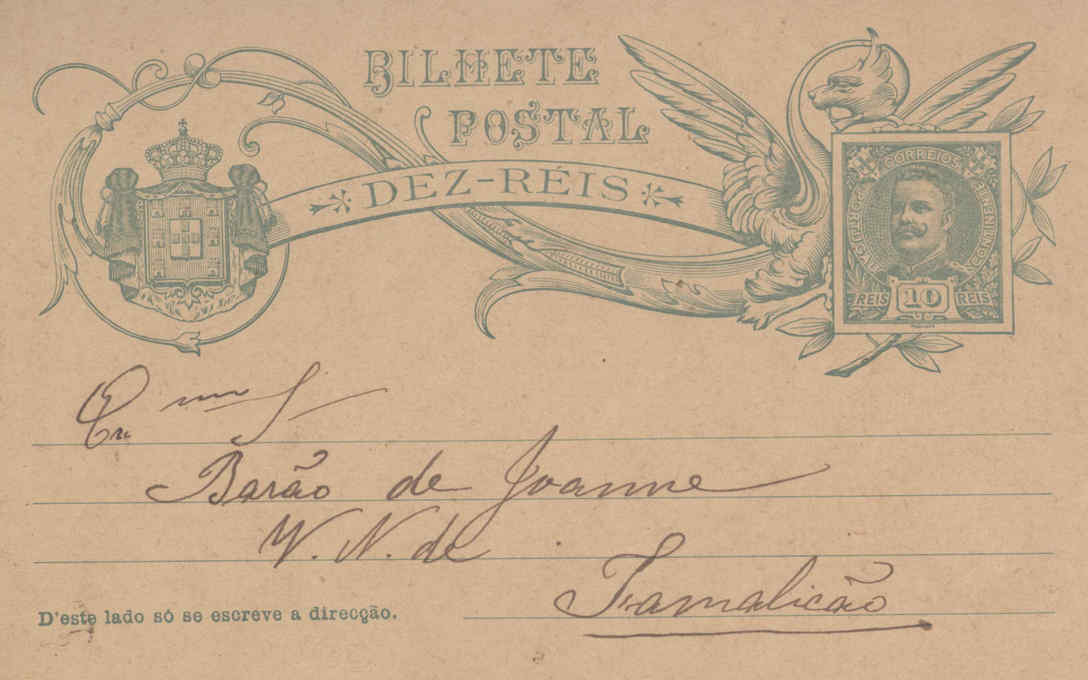 BILHETE
POSTAL
DEZ-RÉIS
CORREIOS
PORTUGAL
CONTINENTE
REIS 10 REIS
Barão de Joanne
V. N. de
Famalicão
D'este lado só se escreve a direcção.